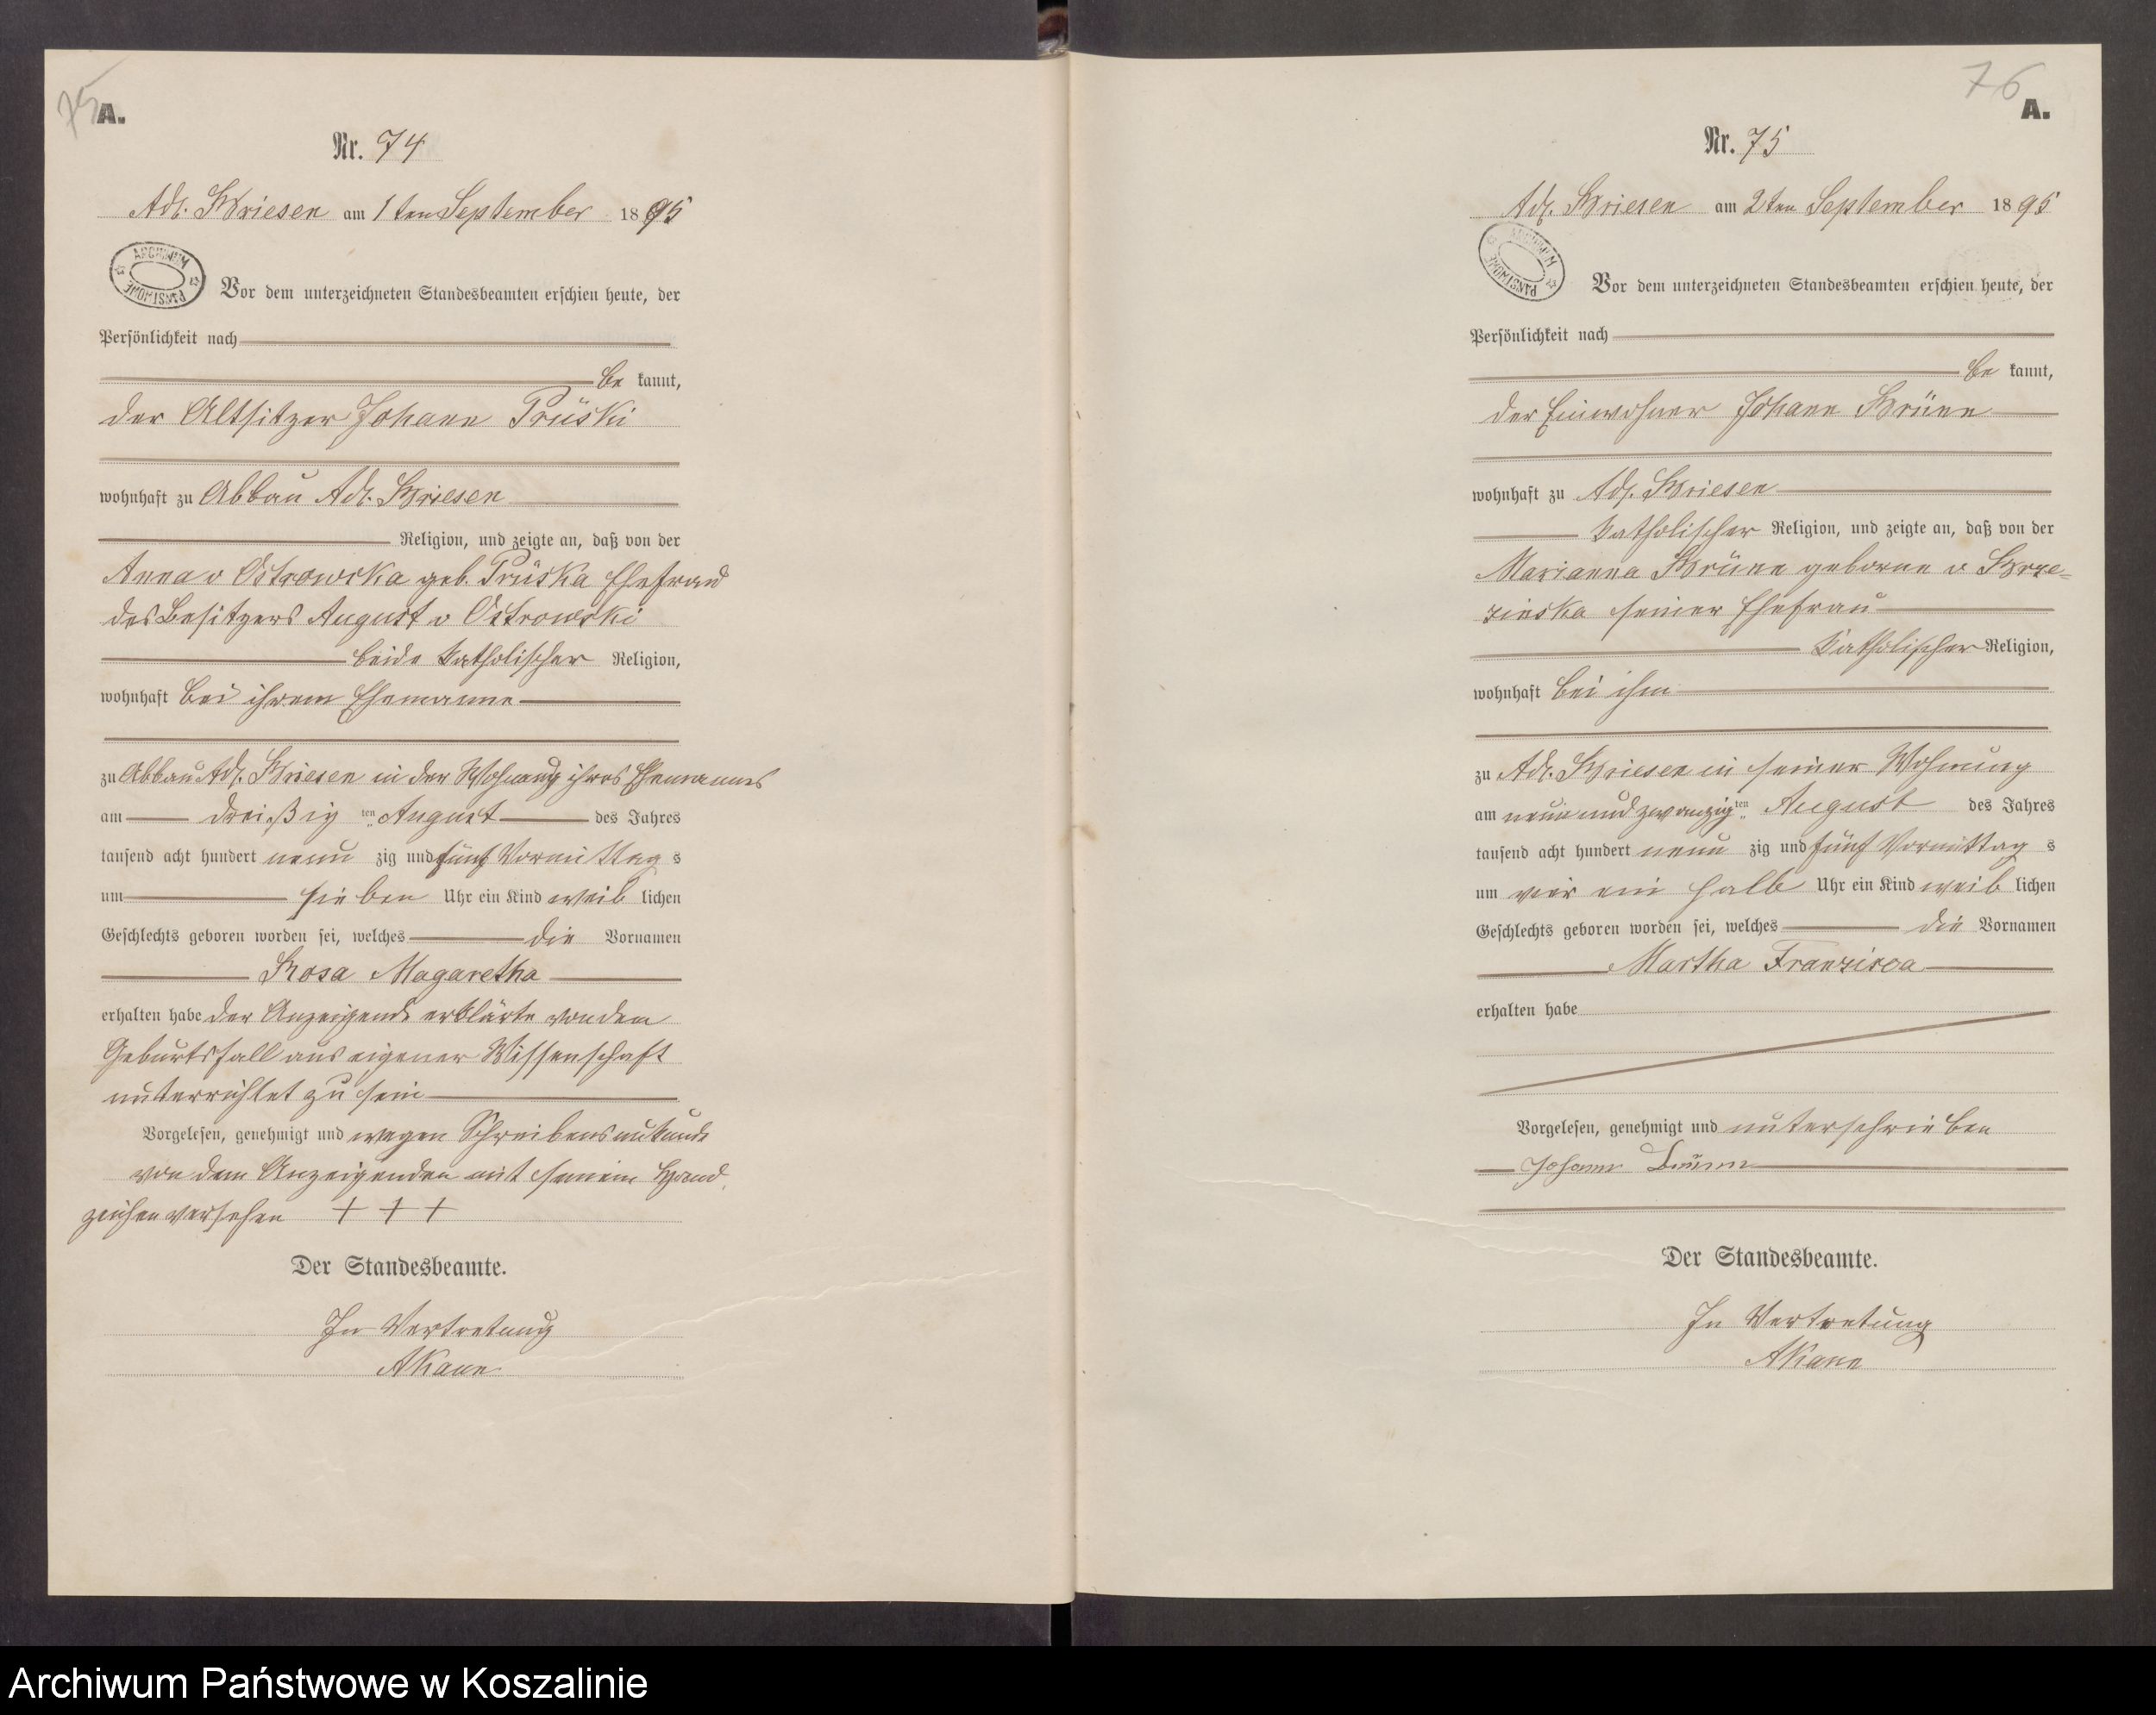 75
A.
Nr. 74
Adl. Briesen am 1ten September 1895
ARCHIWUM PAŃSTWOWE
Vor dem unterzeichneten Standesbeamten erschien heute, der
Persönlichkeit nach
be kannt,
der Altsitzer Johann Prüski
wohnhaft zu Abbau Adl. Briesen
Religion, und zeigte an, daß von der
Anna v Ostrowska geb. Prüska Ehefrau
des Besitzers August v Ostrowski
beide katholischer Religion,
wohnhaft bei ihrem Ehemanne
zu Abbau Adl. Briesen in der Wohnung ihres Ehemannes
am dreißig ten August des Jahres
tausend acht hundert neun zig und fünf Vormittag s
um sieben Uhr ein Kind weib lichen
Geschlechts geboren worden sei, welches die Vornamen
Rosa Magaretha
erhalten habe der Anzeigende erklärte von dem
Geburtsfall aus eigener Wissenschaft
unterrichtet zu sein
Vorgelesen, genehmigt und wegen Schreibensunkunde
von dem Anzeigenden mit seinem Hand
zeichen versehen + + +
Der Standesbeamte.
In Vertretung
AKann
76
A.
Nr. 75
Adl. Briesen am 2ten September 1895
ARCHIWUM PAŃSTWOWE
Vor dem unterzeichneten Standesbeamten erschien heute, der
Persönlichkeit nach
be kannt,
der Einwohner Johann Brünn
wohnhaft zu Adl. Briesen
katholischer Religion, und zeigte an, daß von der
Marianna Brünn geborne v Brze-
zinska seiner Ehefrau
katholischer Religion,
wohnhaft bei ihm
zu Adl. Briesen in seiner Wohnung
am neun und zwanzig ten August des Jahres
tausend acht hundert neun zig und fünf Vormittag s
um vier ein halb Uhr ein Kind weib lichen
Geschlechts geboren worden sei, welches die Vornamen
Martha Franzisca
erhalten habe
Vorgelesen, genehmigt und unterschrieben
Johann Brünn
Der Standesbeamte.
In Vertretung
AKann
Archiwum Państwowe w Koszalinie